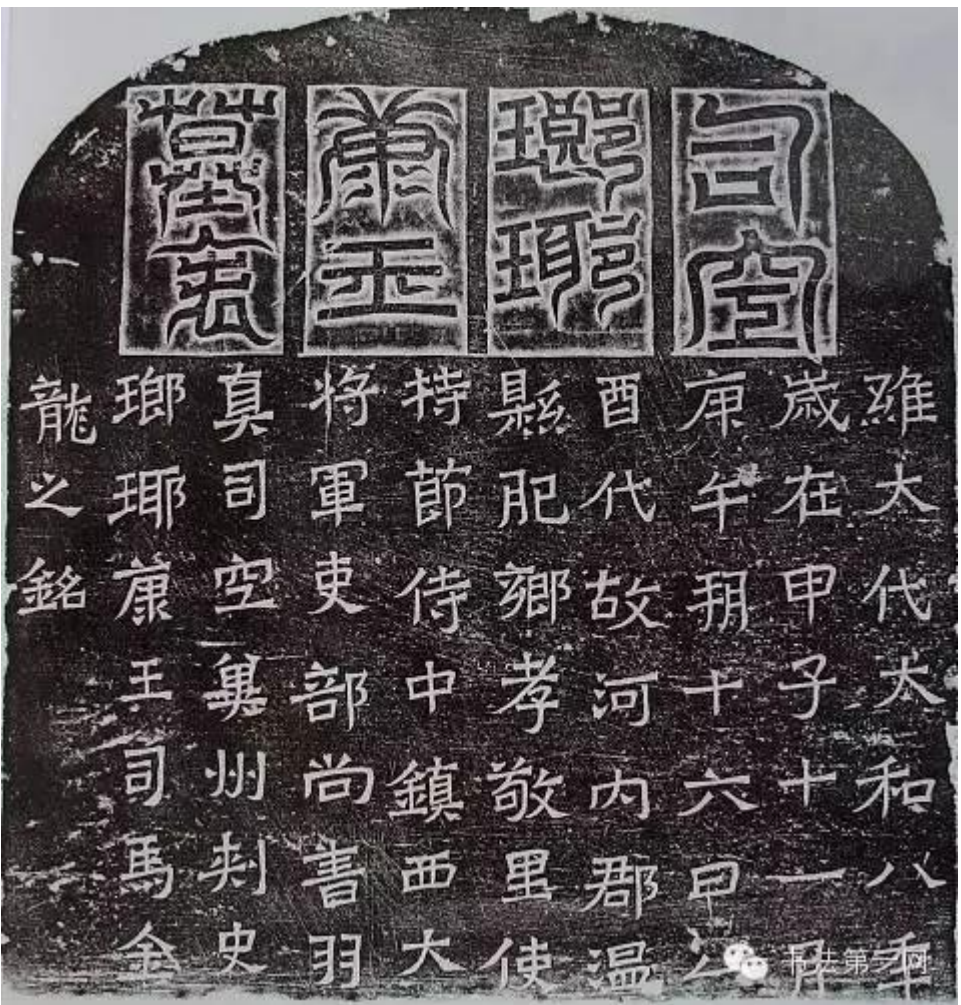 司空
瑯琊
康王
墓表
維大代太和八年
歲在甲子十一月
庚午朔十六日乙
酉代故河內郡溫
縣肥鄉孝敬里使
持節侍中鎮西大
將軍吏部尚書羽
真司空冀州刺史
瑯琊康王司馬金
龍之銘
书法第一网